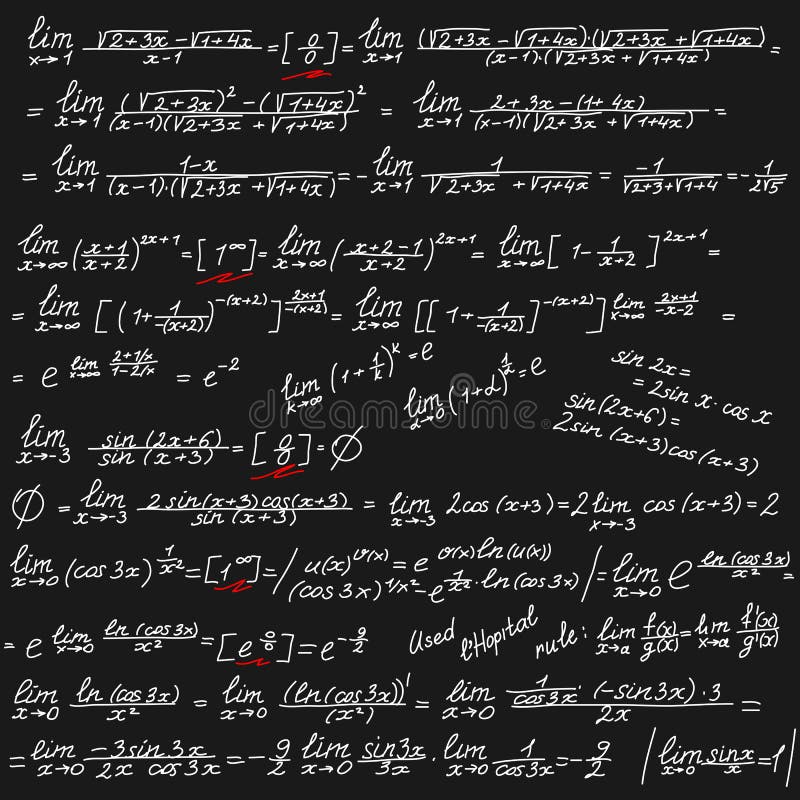 lim x→1 (√2+3x − √1+4x)/(x−1) = [0/0] = lim x→1 ((√2+3x − √1+4x)·(√2+3x + √1+4x))/((x−1)·(√2+3x + √1+4x)) =
= lim x→1 ((√2+3x)² − (√1+4x)²)/((x−1)(√2+3x + √1+4x)) = lim x→1 (2+3x−(1+4x))/((x−1)(√2+3x + √1+4x)) =
= lim x→1 (1−x)/((x−1)·(√2+3x + √1+4x)) = − lim x→1 1/(√2+3x + √1+4x) = −1/(√2+3 + √1+4) = −1/(2√5)
lim x→∞ ((x+1)/(x+2))^(2x+1) = [1^∞] = lim x→∞ ((x+2−1)/(x+2))^(2x+1) = lim x→∞ [1 − 1/(x+2)]^(2x+1) =
= lim x→∞ [(1+ 1/(−(x+2)))^(−(x+2))]^((2x+1)/(−(x+2))) = lim x→∞ [[1+ 1/(−(x+2))]^(−(x+2))]^(lim x→∞ (2x+1)/(−x−2)) =
= e^(lim x→∞ (2+1/x)/(1−2/x)) = e^(−2)
lim k→∞ (1+ 1/k)^k = e
lim α→0 (1+α)^(1/α) = e
sin 2x =
= 2sin x · cos x
sin(2x+6) =
2sin(x+3)cos(x+3)
lim x→−3 sin(2x+6)/sin(x+3) = [0/0] = ∅
∅ = lim x→−3 (2sin(x+3)cos(x+3))/sin(x+3) = lim x→−3 2cos(x+3) = 2 lim x→−3 cos(x+3) = 2
lim x→0 (cos3x)^(1/x²) = [1^∞] = / u(x)^(v(x)) = e^(v(x)ln(u(x)))
(cos3x)^(1/x²) − e^(1/x² · ln(cos3x)) / = lim x→0 e^(ln(cos3x)/x²) =
= e^(lim x→0 ln(cos3x)/x²) = [e^(0/0)] = e^(−9/2)
Used l'Hopital rule: lim x→a f(x)/g(x) = lim x→a f'(x)/g'(x)
lim x→0 ln(cos3x)/x² = lim x→0 ((ln(cos3x))')/(x²)' = lim x→0 (1/cos3x · (−sin3x)·3)/2x =
= lim x→0 (−3sin3x)/(2x cos3x) = −9/2 lim x→0 sin3x/3x · lim x→0 1/cos3x = −9/2 | lim x→0 sinx/x = 1 |
dreamstime